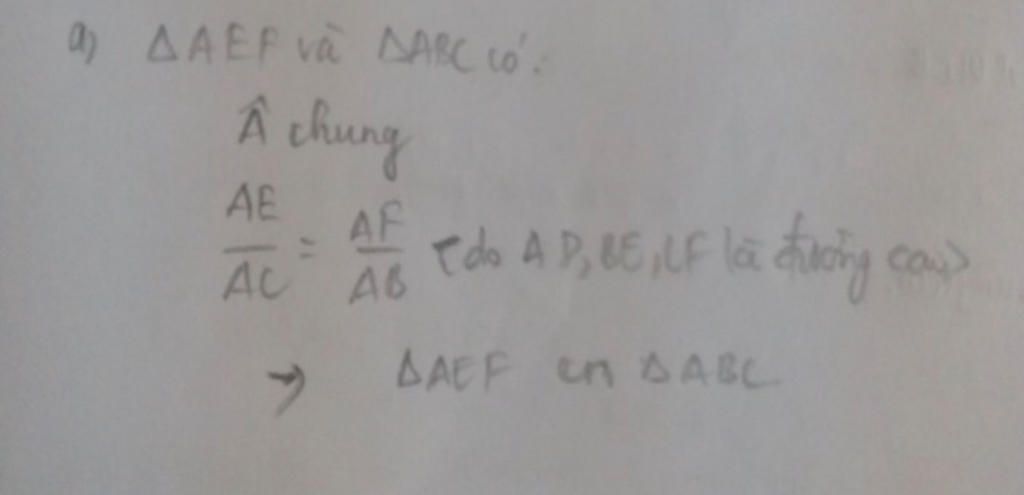 a) ΔAEF và ΔABC có:
Â chung
AE/AC = AF/AB (do AD, BE, CF là đường cao)
→ ΔAEF ∽ ΔABC